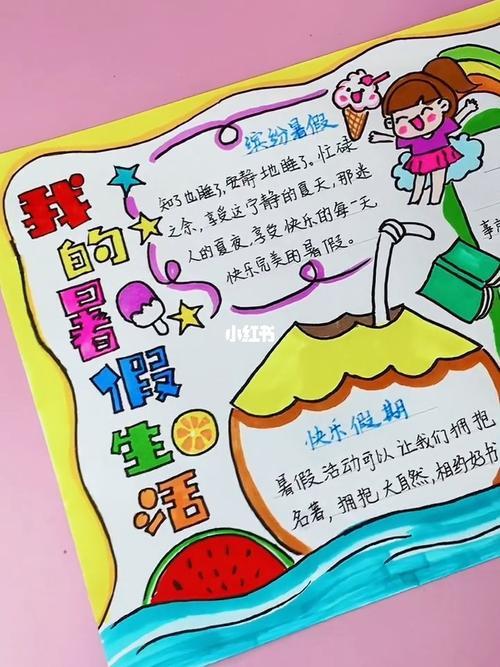 我的暑假生活
缤纷暑假
知了也睡了,安静地睡了。忙碌
之余,享受这宁静的夏天,那迷
人的夏夜,享受快乐的每一天,
快乐完美的暑假。
小红书
快乐假期
暑假活动可以让我们拥抱
名著,拥抱大自然,相约好书